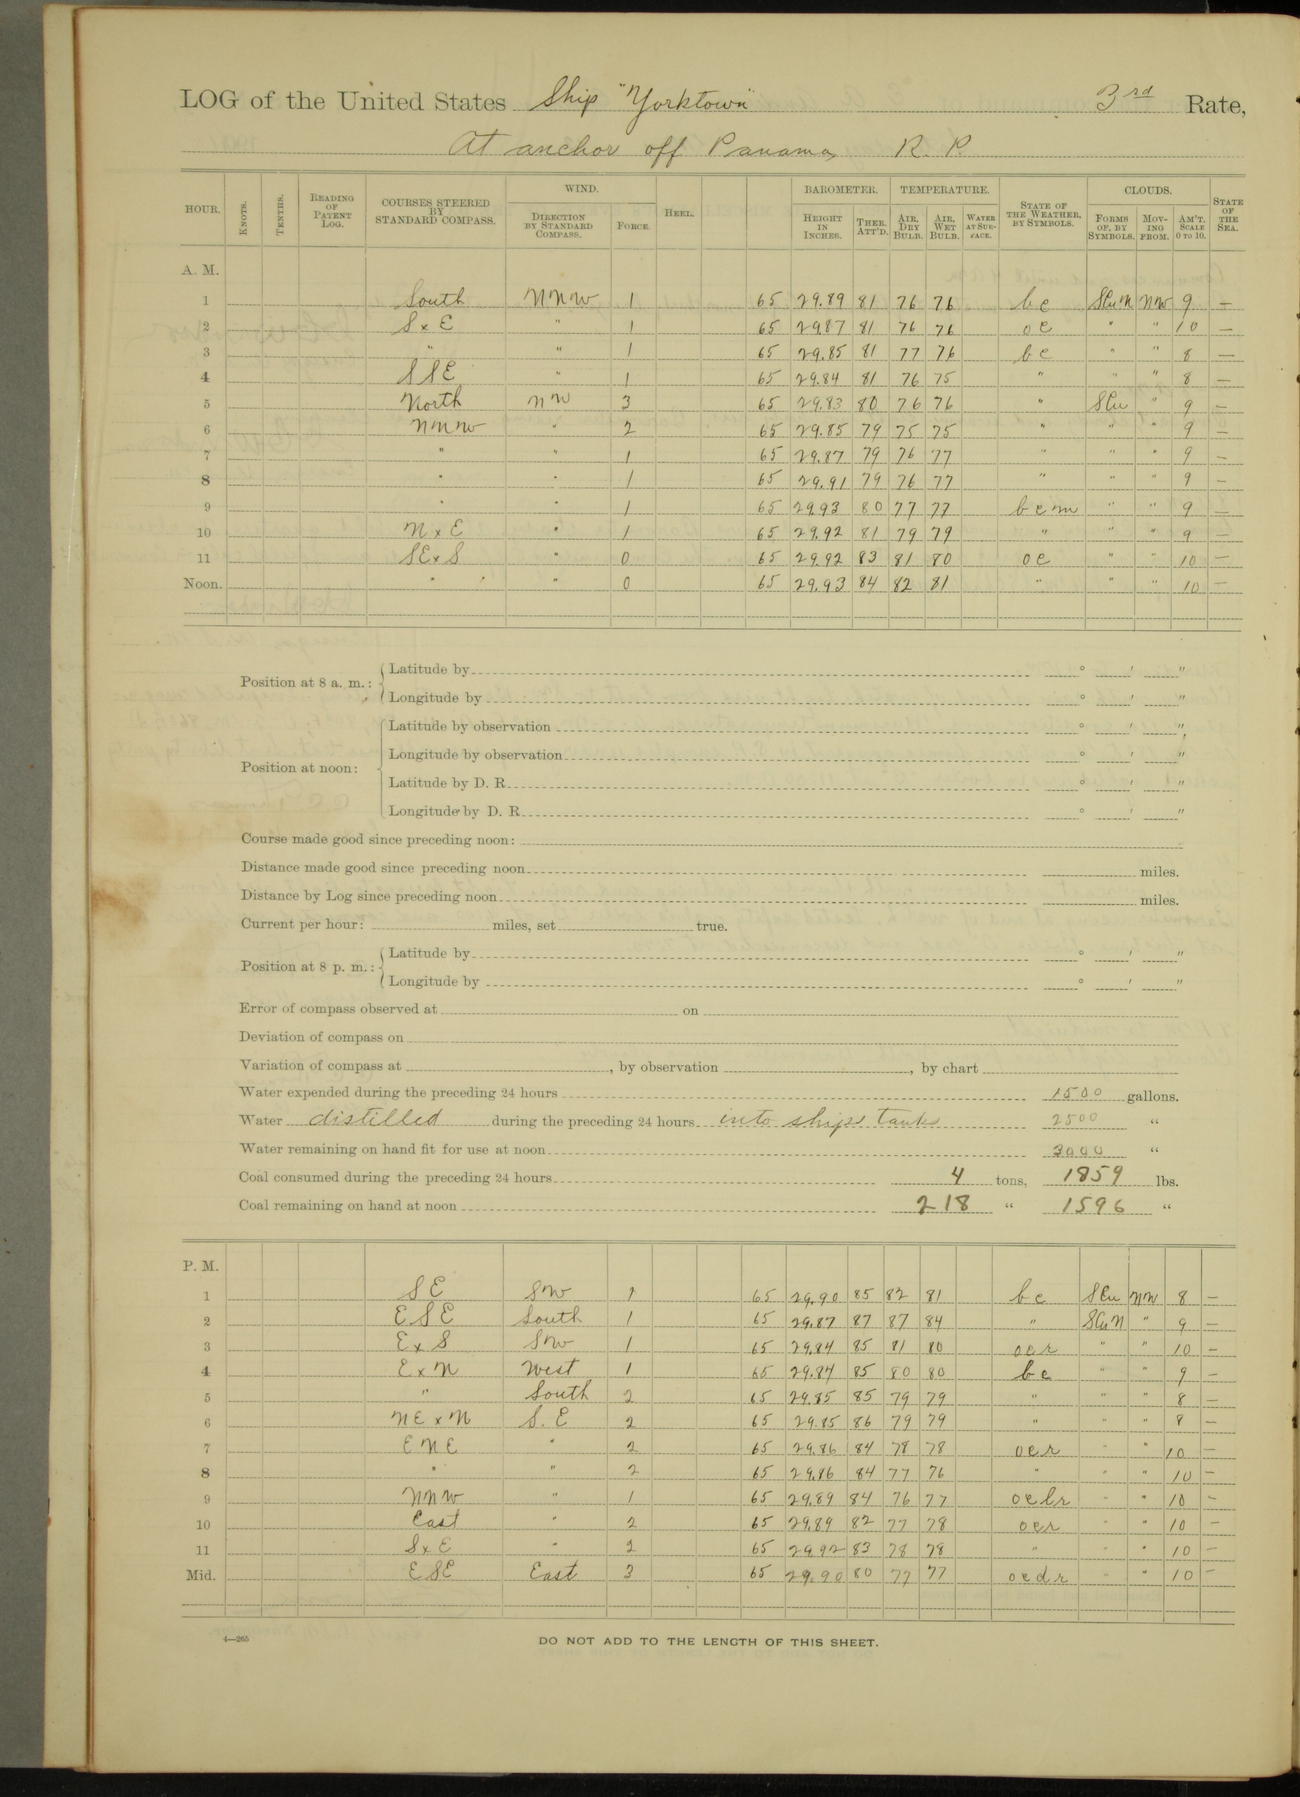 LOG of the United States Ship "Yorktown" 3rd Rate,
At anchor off Panama, R. P.
HOUR. KNOTS. TENTHS. READING OF PATENT LOG. COURSES STEERED BY STANDARD COMPASS. WIND. DIRECTION BY STANDARD COMPASS. FORCE. HEEL. BAROMETER. HEIGHT IN INCHES. THER. ATT'D. TEMPERATURE. AIR, DRY BULB. AIR, WET BULB. WATER AT SURFACE. STATE OF THE WEATHER, BY SYMBOLS. CLOUDS. FORMS OF, BY SYMBOLS. MOVING FROM. AM'T. SCALE 0 TO 10. STATE OF THE SEA.
A. M.
1 South NNW 1 65 29.89 81 76 76 bc SCuN NW 9 —
2 S x E " 1 65 29.87 81 76 76 oc " " 10 —
3 " " 1 65 29.85 81 77 76 bc " " 8 —
4 SSE " 1 65 29.84 81 76 75 " " " 8 —
5 North NW 3 65 29.83 80 76 76 " SCu " 9 —
6 NNW " 2 65 29.85 79 75 75 " " " 9 —
7 " " 1 65 29.87 79 76 77 " " " 9 —
8 " " 1 65 29.91 79 76 77 " " " 9 —
9 " " 1 65 29.93 80 77 77 bcm " " 9 —
10 N x E " 1 65 29.92 81 79 79 " " " 9 —
11 SE x S " 0 65 29.92 83 81 80 oc " " 10 —
Noon. " " 0 65 29.93 84 82 81 " " " 10 —
Position at 8 a. m.: Latitude by ° ′ ″
Longitude by ° ′ ″
Position at noon: Latitude by observation ° ′ ″
Longitude by observation ° ′ ″
Latitude by D. R. ° ′ ″
Longitude by D. R. ° ′ ″
Course made good since preceding noon:
Distance made good since preceding noon miles.
Distance by Log since preceding noon miles.
Current per hour: miles, set true.
Position at 8 p. m.: Latitude by ° ′ ″
Longitude by ° ′ ″
Error of compass observed at on
Deviation of compass on
Variation of compass at , by observation , by chart
Water expended during the preceding 24 hours 1500 gallons.
Water distilled during the preceding 24 hours into ships tanks 2500 "
Water remaining on hand fit for use at noon 3000 "
Coal consumed during the preceding 24 hours 4 tons, 1859 lbs.
Coal remaining on hand at noon 218 " 1596 "
P. M.
1 SE SW 1 65 29.90 85 82 81 bc SCu NW 8 —
2 ESE South 1 65 29.87 87 87 84 " SCuN " 9 —
3 E x S SW 1 65 29.84 85 81 80 ocr " " 10 —
4 E x N West 1 65 29.84 85 80 80 bc " " 9 —
5 " South 2 65 29.85 85 79 79 " " " 8 —
6 NE x N S. E 2 65 29.85 86 79 79 " " " 8 —
7 ENE " 2 65 29.86 84 78 78 ocr " " 10 —
8 " " 2 65 29.86 84 77 76 " " " 10 —
9 NNW " 1 65 29.89 84 76 77 oclr " " 10 —
10 East " 2 65 29.89 82 77 78 ocr " " 10 —
11 S x E " 2 65 29.92 83 78 78 " " " 10 —
Mid. ESE East 3 65 29.90 80 77 77 ocdr " " 10 —
4—265
DO NOT ADD TO THE LENGTH OF THIS SHEET.